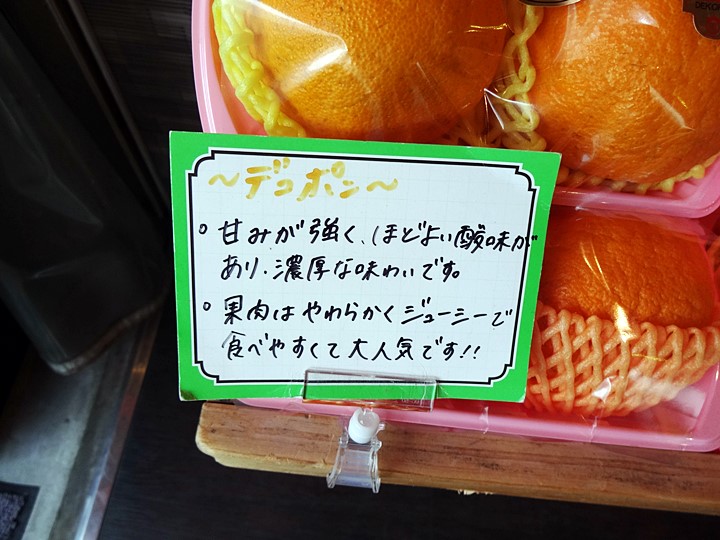 ～デコポン～
。甘みが強く、ほどよい酸味が
あり、濃厚な味わいです。
。果肉はやわらかくジューシーで
食べやすくて大人気です!!